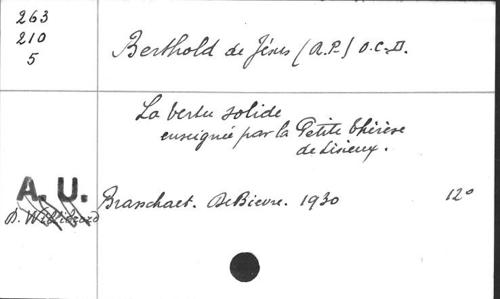 263
210
5
Berthold de Jésus (A.P.) O.C.D.
La vertu solide
enseignée par la Petite Thérèse
de Lisieux.
A. U.
Brasschaet. De Bievre. 1930 12°